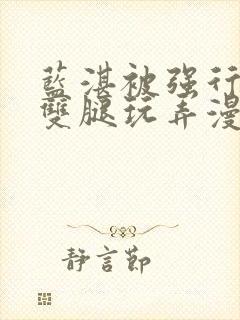 藍湛被强行
雙腿玩弄漫
静言節